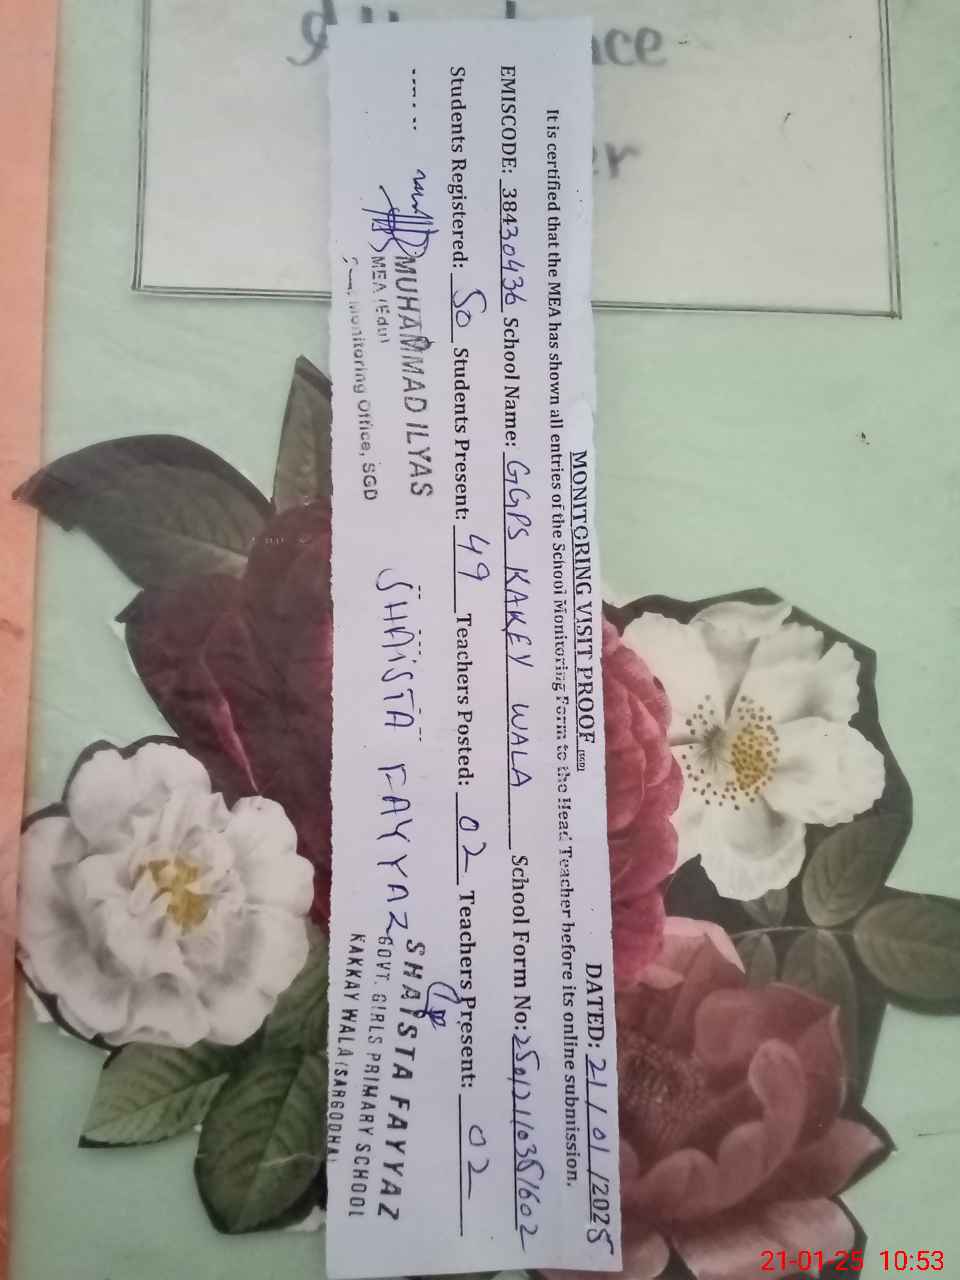 MONITORING VISIT PROOF (SGD)
DATED: 21/01/2025
It is certified that the MEA has shown all entries of the School Monitoring Form to the Head Teacher before its online submission.
EMISCODE: 38430436 School Name: GGPS KAKEY WALA School Form No: 250121103851602
Students Registered: 50 Students Present: 49 Teachers Posted: 02 Teachers Present: 02
MUHAMMAD ILYAS
MEA (Edu)
Monitoring Office, SGD
SHAISTA FAYYAZ
SHAISTA FAYYAZ
GOVT. GIRLS PRIMARY SCHOOL
KAKKAY WALA (SARGODHA)
21-01-25 10:53